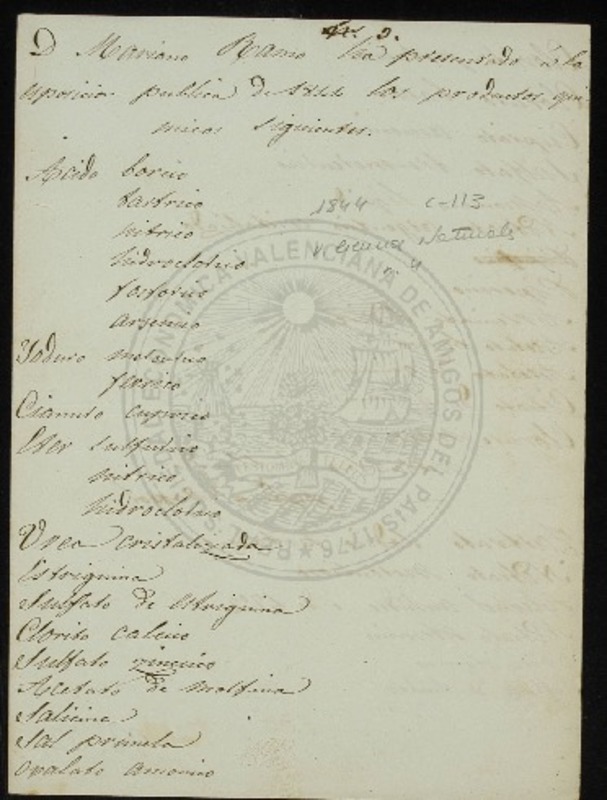 D Mariano Ramo ha presentado á la
esposicion publica de 1844 los productos qui-
micos siguientes.
Acido borico
tastrico
nitrico
hidroclorico
fosforico
arsenico
1844 C-113
Naturals
nº 4
Yoduro mercurico
ferrico
Cianuro cuprico
Eter sulfurico
nitrico
hidroclorico
Urea cristalizada
Estriquina
Sulfato de estriquina
Clorito calcico
Sulfato zincico
Acetato de morfina
Salicina
Sal prunela
oxalato amonico
REAL SOCIEDAD ECONOMICA VALENCIANA DE AMIGOS DEL PAIS 1776